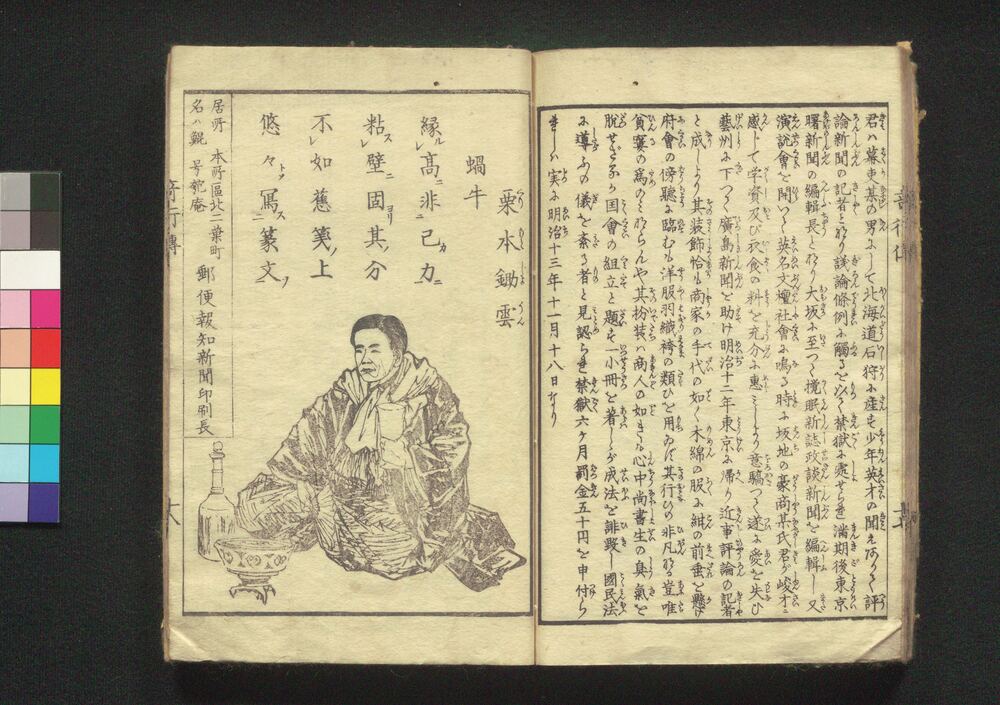 君ハ幕吏某の男にして北海道石狩に産す少年英才の聞えありて評
論新聞の記者となり議論條例に觸るを以て禁獄に處せらる満期後東京
曙新聞の編輯長となり大坂に至つて攪眠新誌政談新聞を編輯し又
演説會を開いて英名文壇社會に鳴る時に坂地の豪商某氏君が峻才に
感じて学資及び衣食の料を充分に惠ミしより意驕つて遂に愛を失ひ
藝州に下つて廣島新聞を助け明治十二年東京に帰り近事評論の記者
と成しより其装飾恰も商家の手代の如く木綿の服に紺の前垂を懸け
府會の傍聽に臨むも洋服羽織袴の類ひを用ゐず其行ひの非凡なる豈唯
貧窶の為のミならんや其扮装ハ商人の如きなるも心中尚書生の臭氣を
脱せざるか国會の組立と題す一小冊を著し成法を誹毀し國民法
に導ふの儀を紊る者と見認られ禁獄六ヶ月罰金五十円を申付ら
れしハ実に明治十三年十一月十八日なり
栗本鋤雲
蝸牛
縁ルレ高ニ非ニ己カ力ニ
粘スレ壁ニ固ヨリ其ノ分
不レ如蕉箋ノ上
悠々トメ冩スニ篆文ヲ
居所 本所區北二葉町
名ハ鯤 号匏庵
郵便報知新聞印刷長